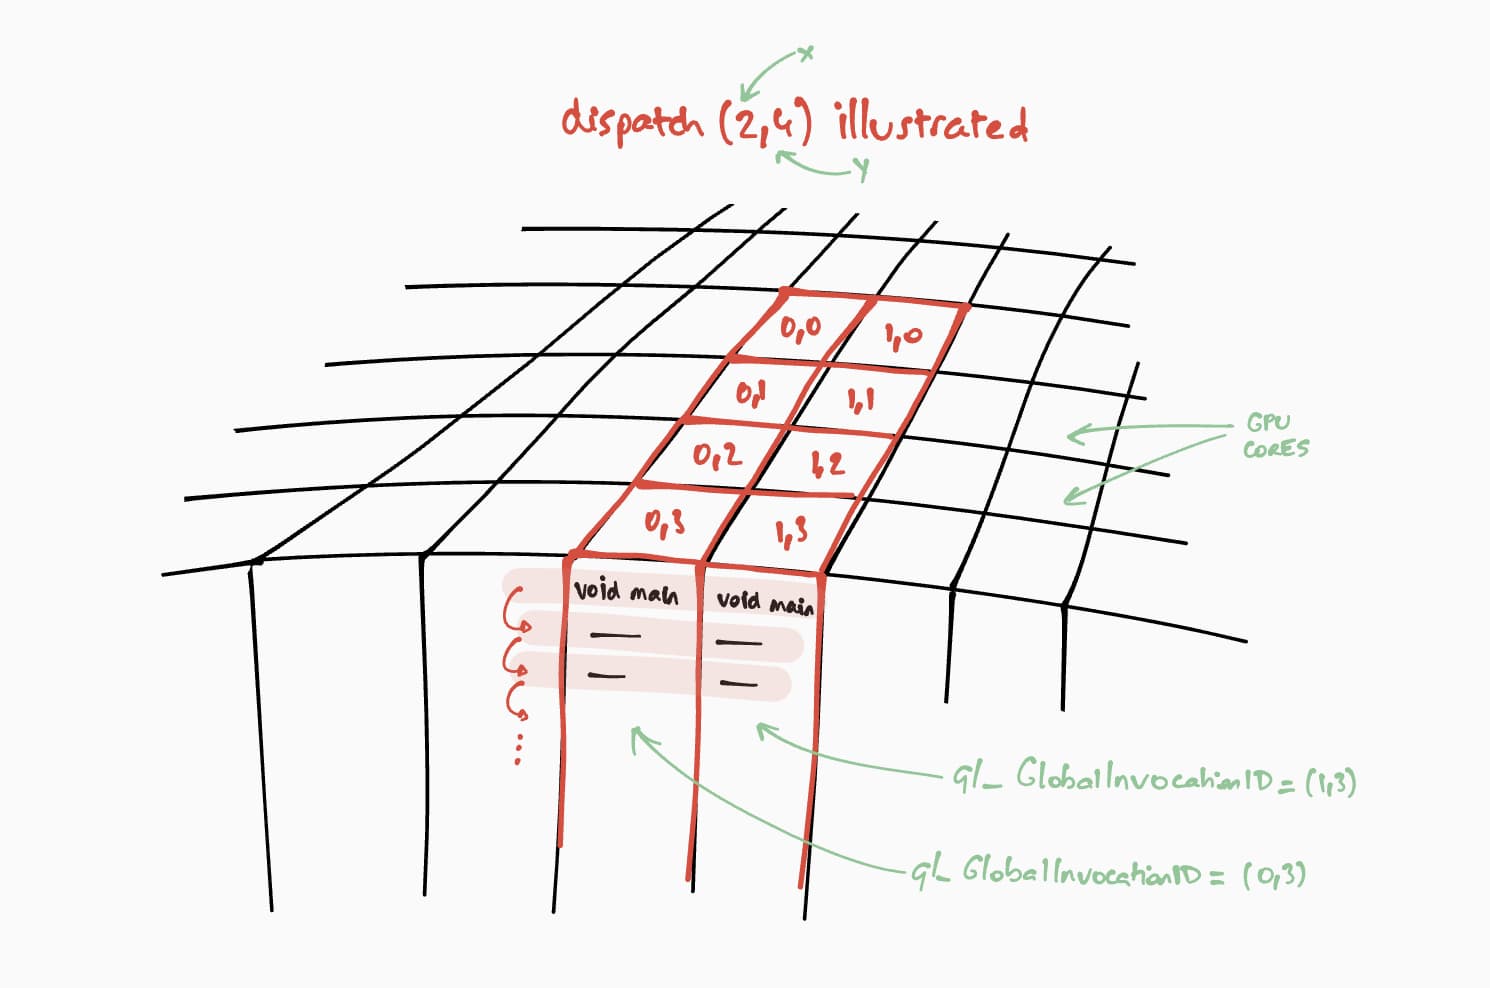 x
dispatch (2,4) illustrated
y
0,0 1,0
0,1 1,1
0,2 1,2
0,3 1,3
GPU
CORES
void main void main
gl_GlobalInvocationID = (1,3)
gl_GlobalInvocationID = (0,3)